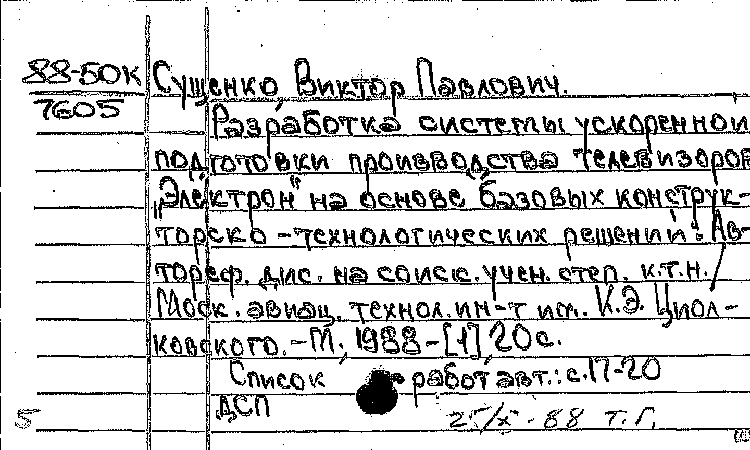 88-50К
7605
Сущенко, Виктор Павлович.
Разработка системы ускоренной
подготовки производства телевизоров
„Электрон" на основе базовых конструк-
торско-технологических решений: Ав-
тореф. дис. на соиск. учен. степ. к.т.н.
Моск. авиац. технол. ин-т им. К.Э. Циол-
ковского. - М., 1988 - [1], 20 с.
Список работ авт.: с.17-20
ДСП
5
25/X-88 т.г.